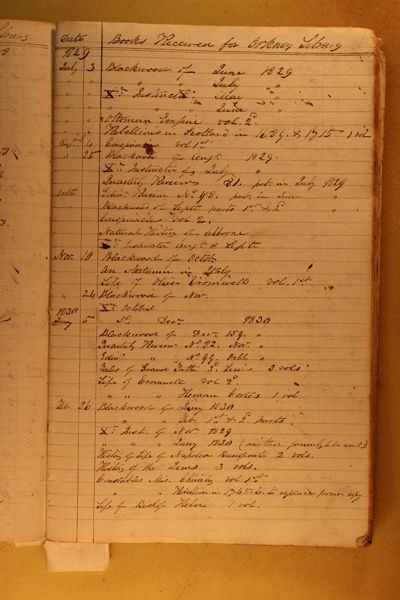 Date Books Received for Orkney Library
1829
July 3 Blackwood of June 1829
" " " " July "
" " Xn Instructor May "
" " " " June "
" " Ottoman Empire vol. 2d
" " Rebellions in Scotland in 1639 & 1715 1 vol.
Augt 4 Conspiracies vol 1st
" 25 Blackwood of Augt 1829.
Xn Instructor of July "
Quarterly Review 81. pubd in July 1829
Octr Edinr Review No 98. pubd in June "
Blackwood of Septr parts 1st & 2d "
Conspiracies Vol 2.
Natural History of Selborne
Xn Instructor Augt & Septr
Nov. 18 Blackwood of Octobr
An Autumn in Italy
Life of Oliver Cromwell Vol. 1st
" 24 Blackwood of Nov.
1830 Xn Octobr
Jany 5 Do Decr 1830
Blackwood of Decr 159. "
Quarterly Review No 82. Nov. "
Edinr " No 99. Octr "
Tales of Grand Father 3d Series 3 vols
Life of Cromwell Vol 2d
" " Hernan Cortes 1 vol.
Feb 26 Blackwood of Jany 1830
" " Feb 1st & 2d parts.
Xn Inst. of Nov 1829
" " " Jany 1830
History of Life of Napoleon Buonaparte 2 vols.
History of the Jews 3 vols.
Constables Mis. Chivalry vol 1st
" " Rebellion in 1745 to replace former copy
Life of Bishop Heber 1 vol.